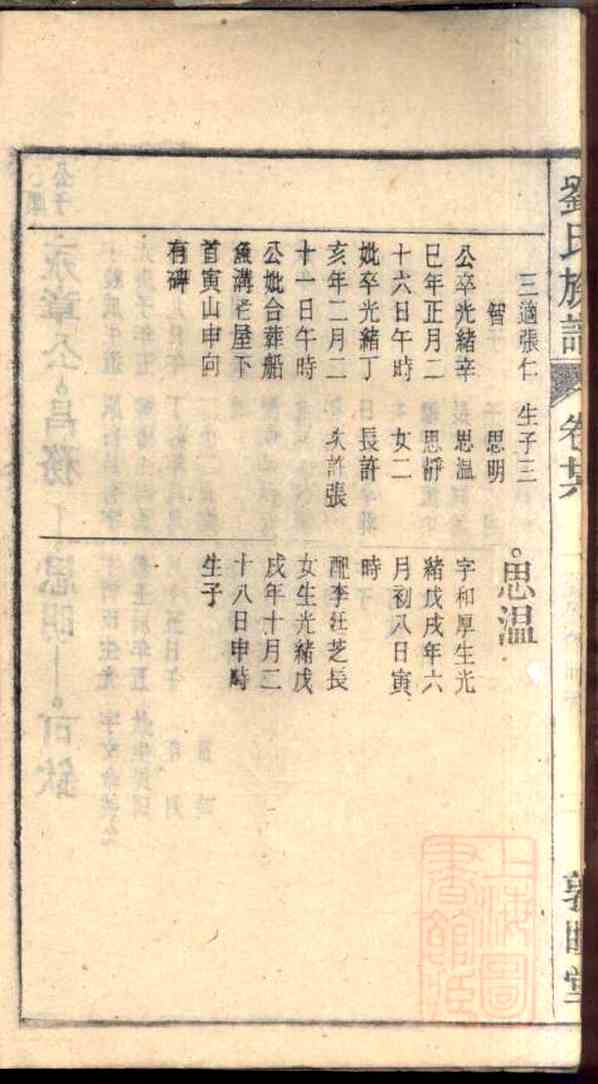 劉氏族譜 卷廿六
三適張仁 生子三
智 思明
公卒光緒辛 思溫
巳年正月二 思靜
十六日午時 女二
妣卒光緒丁 長許
亥年二月二 次許張
十一日午時
公妣合葬船
魚溝老屋下
首寅山申向
有碑
思溫
字和厚生光
緒戊戌年六
月初八日寅
時
配李汪芝長
女生光緒戊
戌年十月二
十八日申時
生子
上海圖
書館